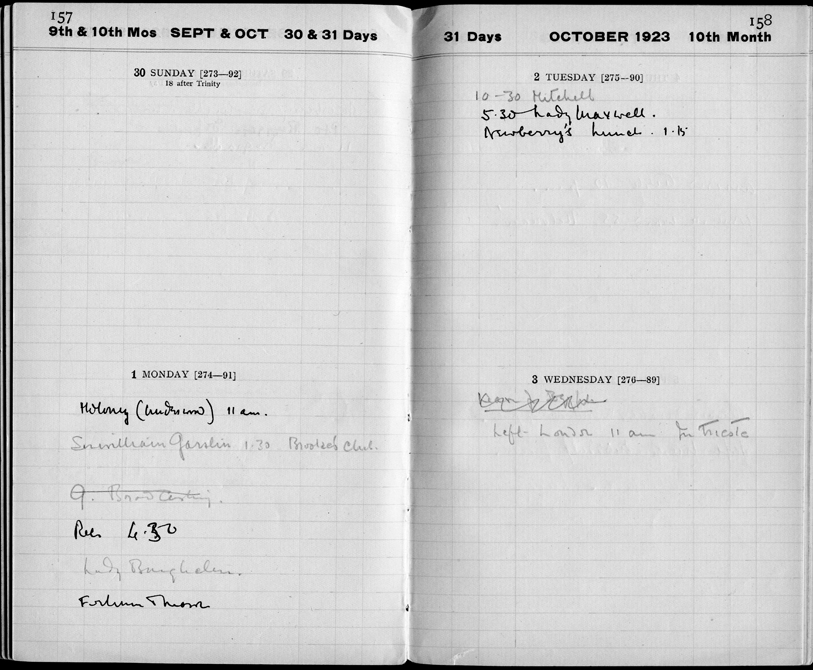 157
9th & 10th Mos SEPT & OCT 30 & 31 Days
30 SUNDAY [273—92]
18 after Trinity
1 MONDAY [274—91]
11 am.
Sir William 1.30 Brooks's Club.
9.
4.30
Lady
158
31 Days OCTOBER 1923 10th Month
2 TUESDAY [275—90]
10-30 Mitchell
5.30 Lady Maxwell.
Newberry's lunch. 1.15
3 WEDNESDAY [276—89]
Left London 11 am for Trieste